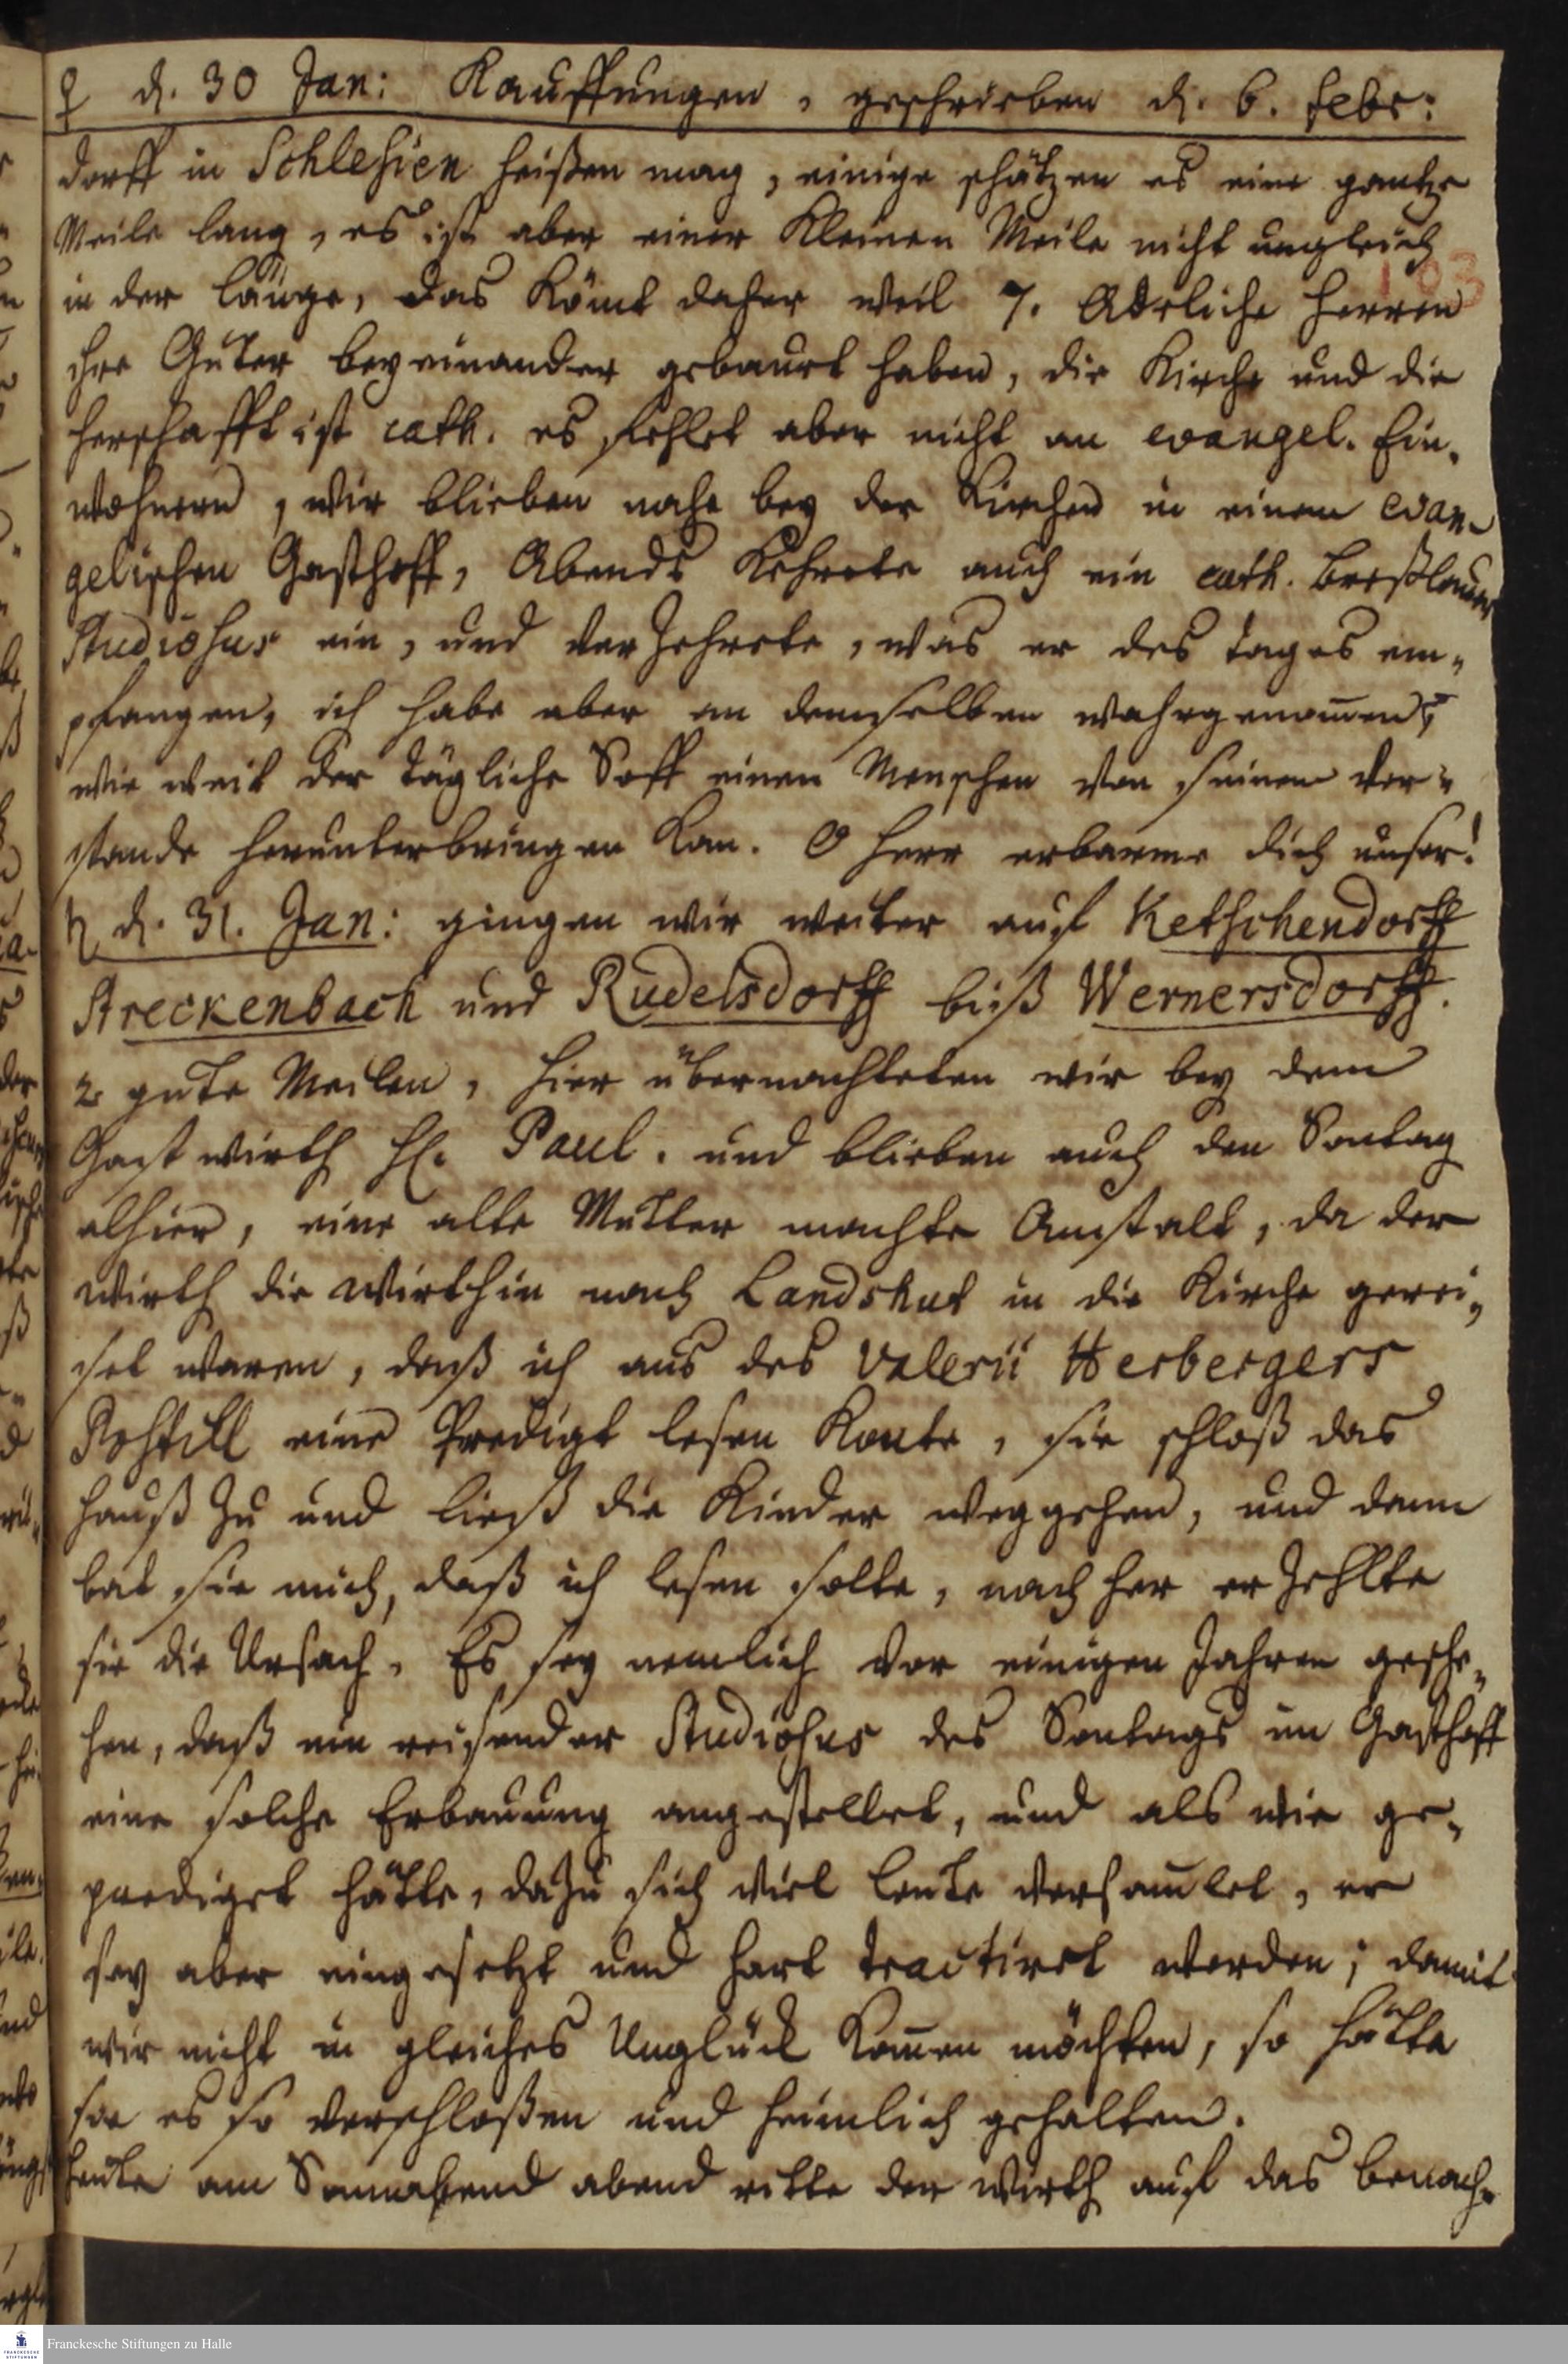 ♀ d. 30 Jan: Kauffungen, geschrieben d. 6. Febr:
dorff in Schlesien heißen mag, einige schätzen es eine gantze
Meile lang, es ist aber einer Kleinen Meile nicht ungleich
in der länge, das Kömt daher weil 7. Adeliche Herren
103
ihre Güter beyeinander gebauet haben, die Kirche und die
Herschafft ist cath. es fehlet aber nicht an evangel. Ein„
wohnern, wir blieben nahe bey der Kirchen in einem evan„
gelischen Gasthoff, Abends Kehrete auch ein cath. Breßlauer
Studiosus ein, und verzehrete, was er des tages em„
pfangen, ich habe aber an demselben wahrgenom̅en,
wie weit der tägliche Soff einen Menschen von seinem Ver„
stande herunterbringen kan. O Herr erbarme dich unser!
♄ d. 31. Jan: gingen wir weiter auf Ketschendorff
Streckenbach und Rudelsdorff biß Wernersdorff.
2 gute Meilen, hier übernachteten wir bey dem
Gastwirth H. Paul. und blieben auch den Sontag
alhier, eine alte Mutter machte Anstalt, da der
Wirth die Wirthin nach Landshut in die Kirche gerei„
set waren, daß ich aus des Valerii Herbergers
Postill eine Predigt lesen Konte, sie schloß das
Hauß zu und ließ die Kinder weggehen, und denn
bat sie mich, daß ich lesen solte, nach her erzehlte
sie die Ursach. Es sey nemlich vor einigen Jahren gesche„
hen, daß ein reisender Studiosus des Sontags im Gasthoff
eine solche Erbauung angestellet, und als wie ge„
prediget hätte, dazu sich viel leute versam̅let, er
sey aber eingesetzt und hart tractiret worden; damit
wir nicht in gleiches Unglück Kom̅en möchten, so hätte
sie es so verschloßen und heimlich gehalten.
heute am Sonnabend abend ritte der Wirth auf das benach„
Franckesche Stiftungen zu Halle